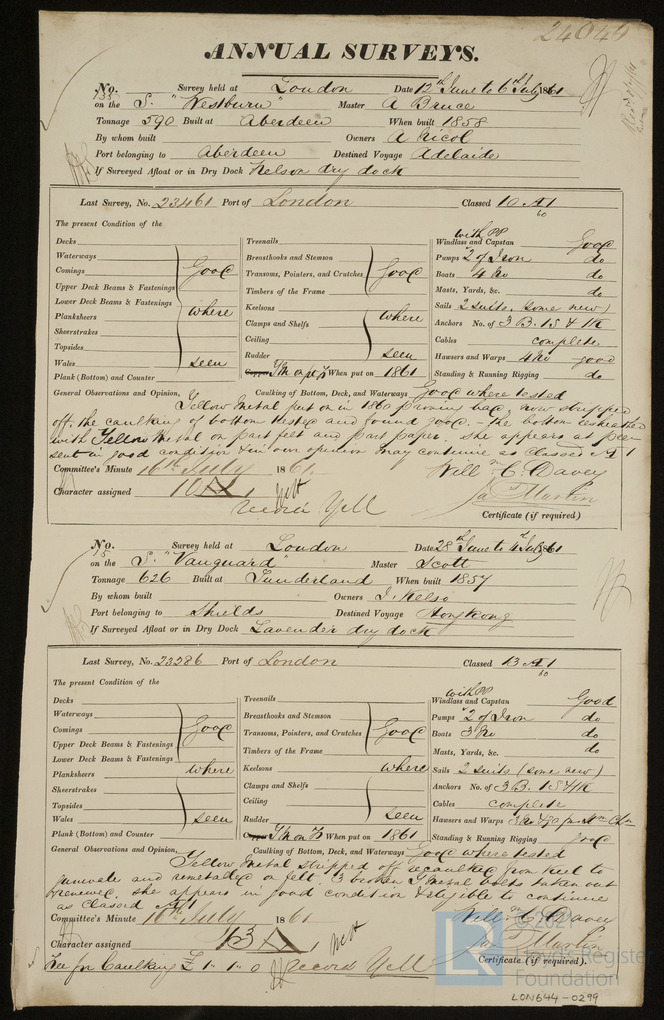 24040
ANNUAL SURVEYS.
No. Survey held at London Date 12th June to 6th July 1861
on the S. "Westburn" Master A Bruce
Tonnage 590 Built at Aberdeen When built 1858
By whom built Owners A Nicol
Port belonging to Aberdeen Destined Voyage Adelaide
If Surveyed Afloat or in Dry Dock Nelson dry dock
Last Survey, No. 23461 Port of London Classed 10 A1
60
The present Condition of the
Decks
Waterways
Comings
Upper Deck Beams & Fastenings
Lower Deck Beams & Fastenings
Planksheers
Sheerstrakes
Topsides
Wales
Plank (Bottom) and Counter
Good
where
seen
Treenails
Breasthooks and Stemson
Transoms, Pointers, and Crutches
Timbers of the Frame
Keelsons
Clamps and Shelfs
Ceiling
Rudder
Good
where
seen
When put on 1861
with PP
Windlass and Capstan Good
Pumps 2 of Iron do
Boats 4 No do
Masts, Yards, &c. do
Sails 2 suits (some new)
Anchors No. of 3 B. 1 S & 1 K
Cables complete
Hawsers and Warps 4 No good
Standing & Running Rigging do
General Observations and Opinion, Caulking of Bottom, Deck, and Waterways Good where tested
Yellow Metal put on in 1860 proving bad, now stripped
off, the caulking of bottom tested and found good. - the bottom resheathed
with Yellow Metal on part felt and part paper. she appears at pre
sent in good condition & in our opinion may continue as classed A1
Committee's Minute 16th July 1861 Will m C. Davey
Character assigned 10 A1 Jas Martin
Record Yell Met
Certificate (if required)
No. Survey held at London Date 28th June to 4th July 1861
on the S. "Vanguard" Master Scott
Tonnage 626 Built at Sunderland When built 1857
By whom built Owners J. Kelso
Port belonging to Shields Destined Voyage Hong Kong
If Surveyed Afloat or in Dry Dock Lavender dry dock
Last Survey, No. 23286 Port of London Classed 13 A1
60
The present Condition of the
Decks
Waterways
Comings
Upper Deck Beams & Fastenings
Lower Deck Beams & Fastenings
Planksheers
Sheerstrakes
Topsides
Wales
Plank (Bottom) and Counter
Good
where
seen
Treenails
Breasthooks and Stemson
Transoms, Pointers, and Crutches
Timbers of the Frame
Keelsons
Clamps and Shelfs
Ceiling
Rudder
Good
where
seen
When put on 1861
with PP
Windlass and Capstan Good
Pumps 2 of Iron do
Boats 3 No do
Masts, Yards, &c. do
Sails 2 suits (some new)
Anchors No. of 3 B. 1 S & 1 K
Cables complete
Hawsers and Warps 3 No
Standing & Running Rigging good
General Observations and Opinion, Caulking of Bottom, Deck, and Waterways Good where tested
Yellow Metal stripped off, recaulked from keel to
gunwale and remetalled on felt. 3 broken Y Metal bolts taken out
& renewed. she appears in good condition & eligible to continue
as classed A1
Committee's Minute 16th July 1861 Will m C. Davey
Character assigned 13 A1 Jas Martin
Fee for Caulking £1-1-0 Record Yell Met
Certificate (if required).
© 2021
Lloyd's Register
Foundation
LR
LON644-0299